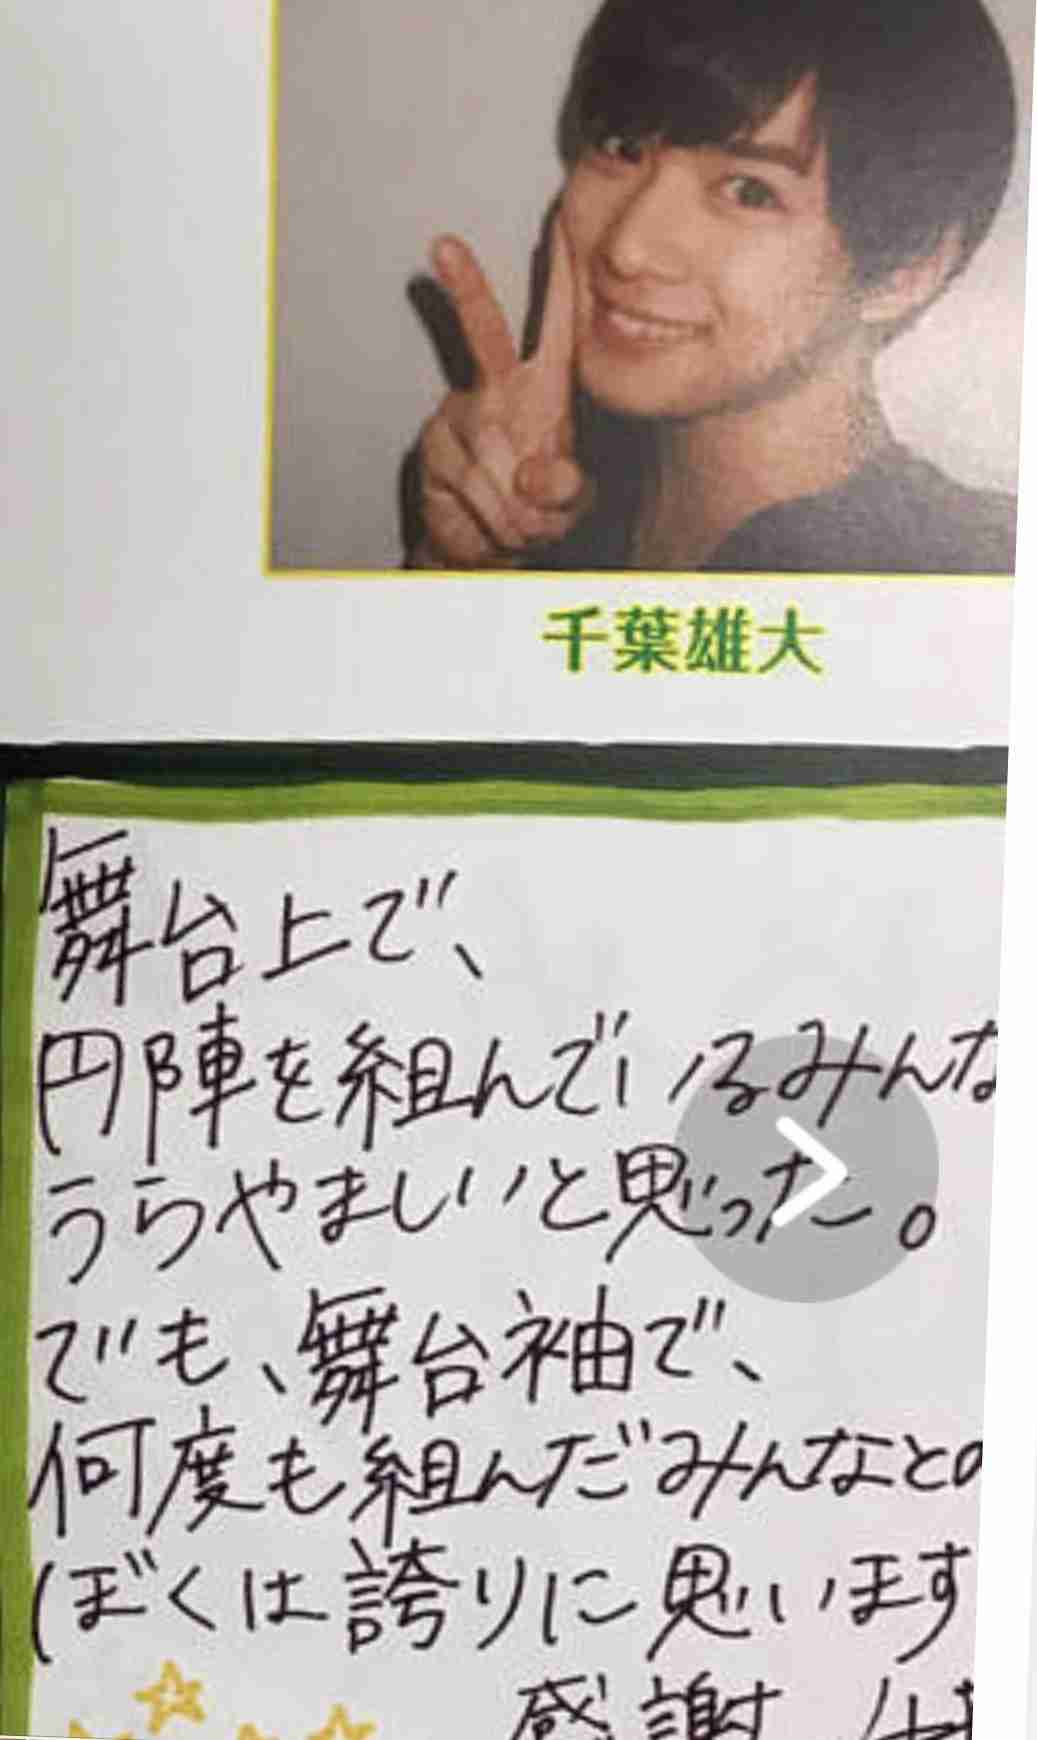 千葉雄大
舞台上で、
円陣を組んでいるみんな
うらやましいと思った。
でも、舞台袖で、
何度も組んだみんなとの
ぼくは誇りに思います
感謝